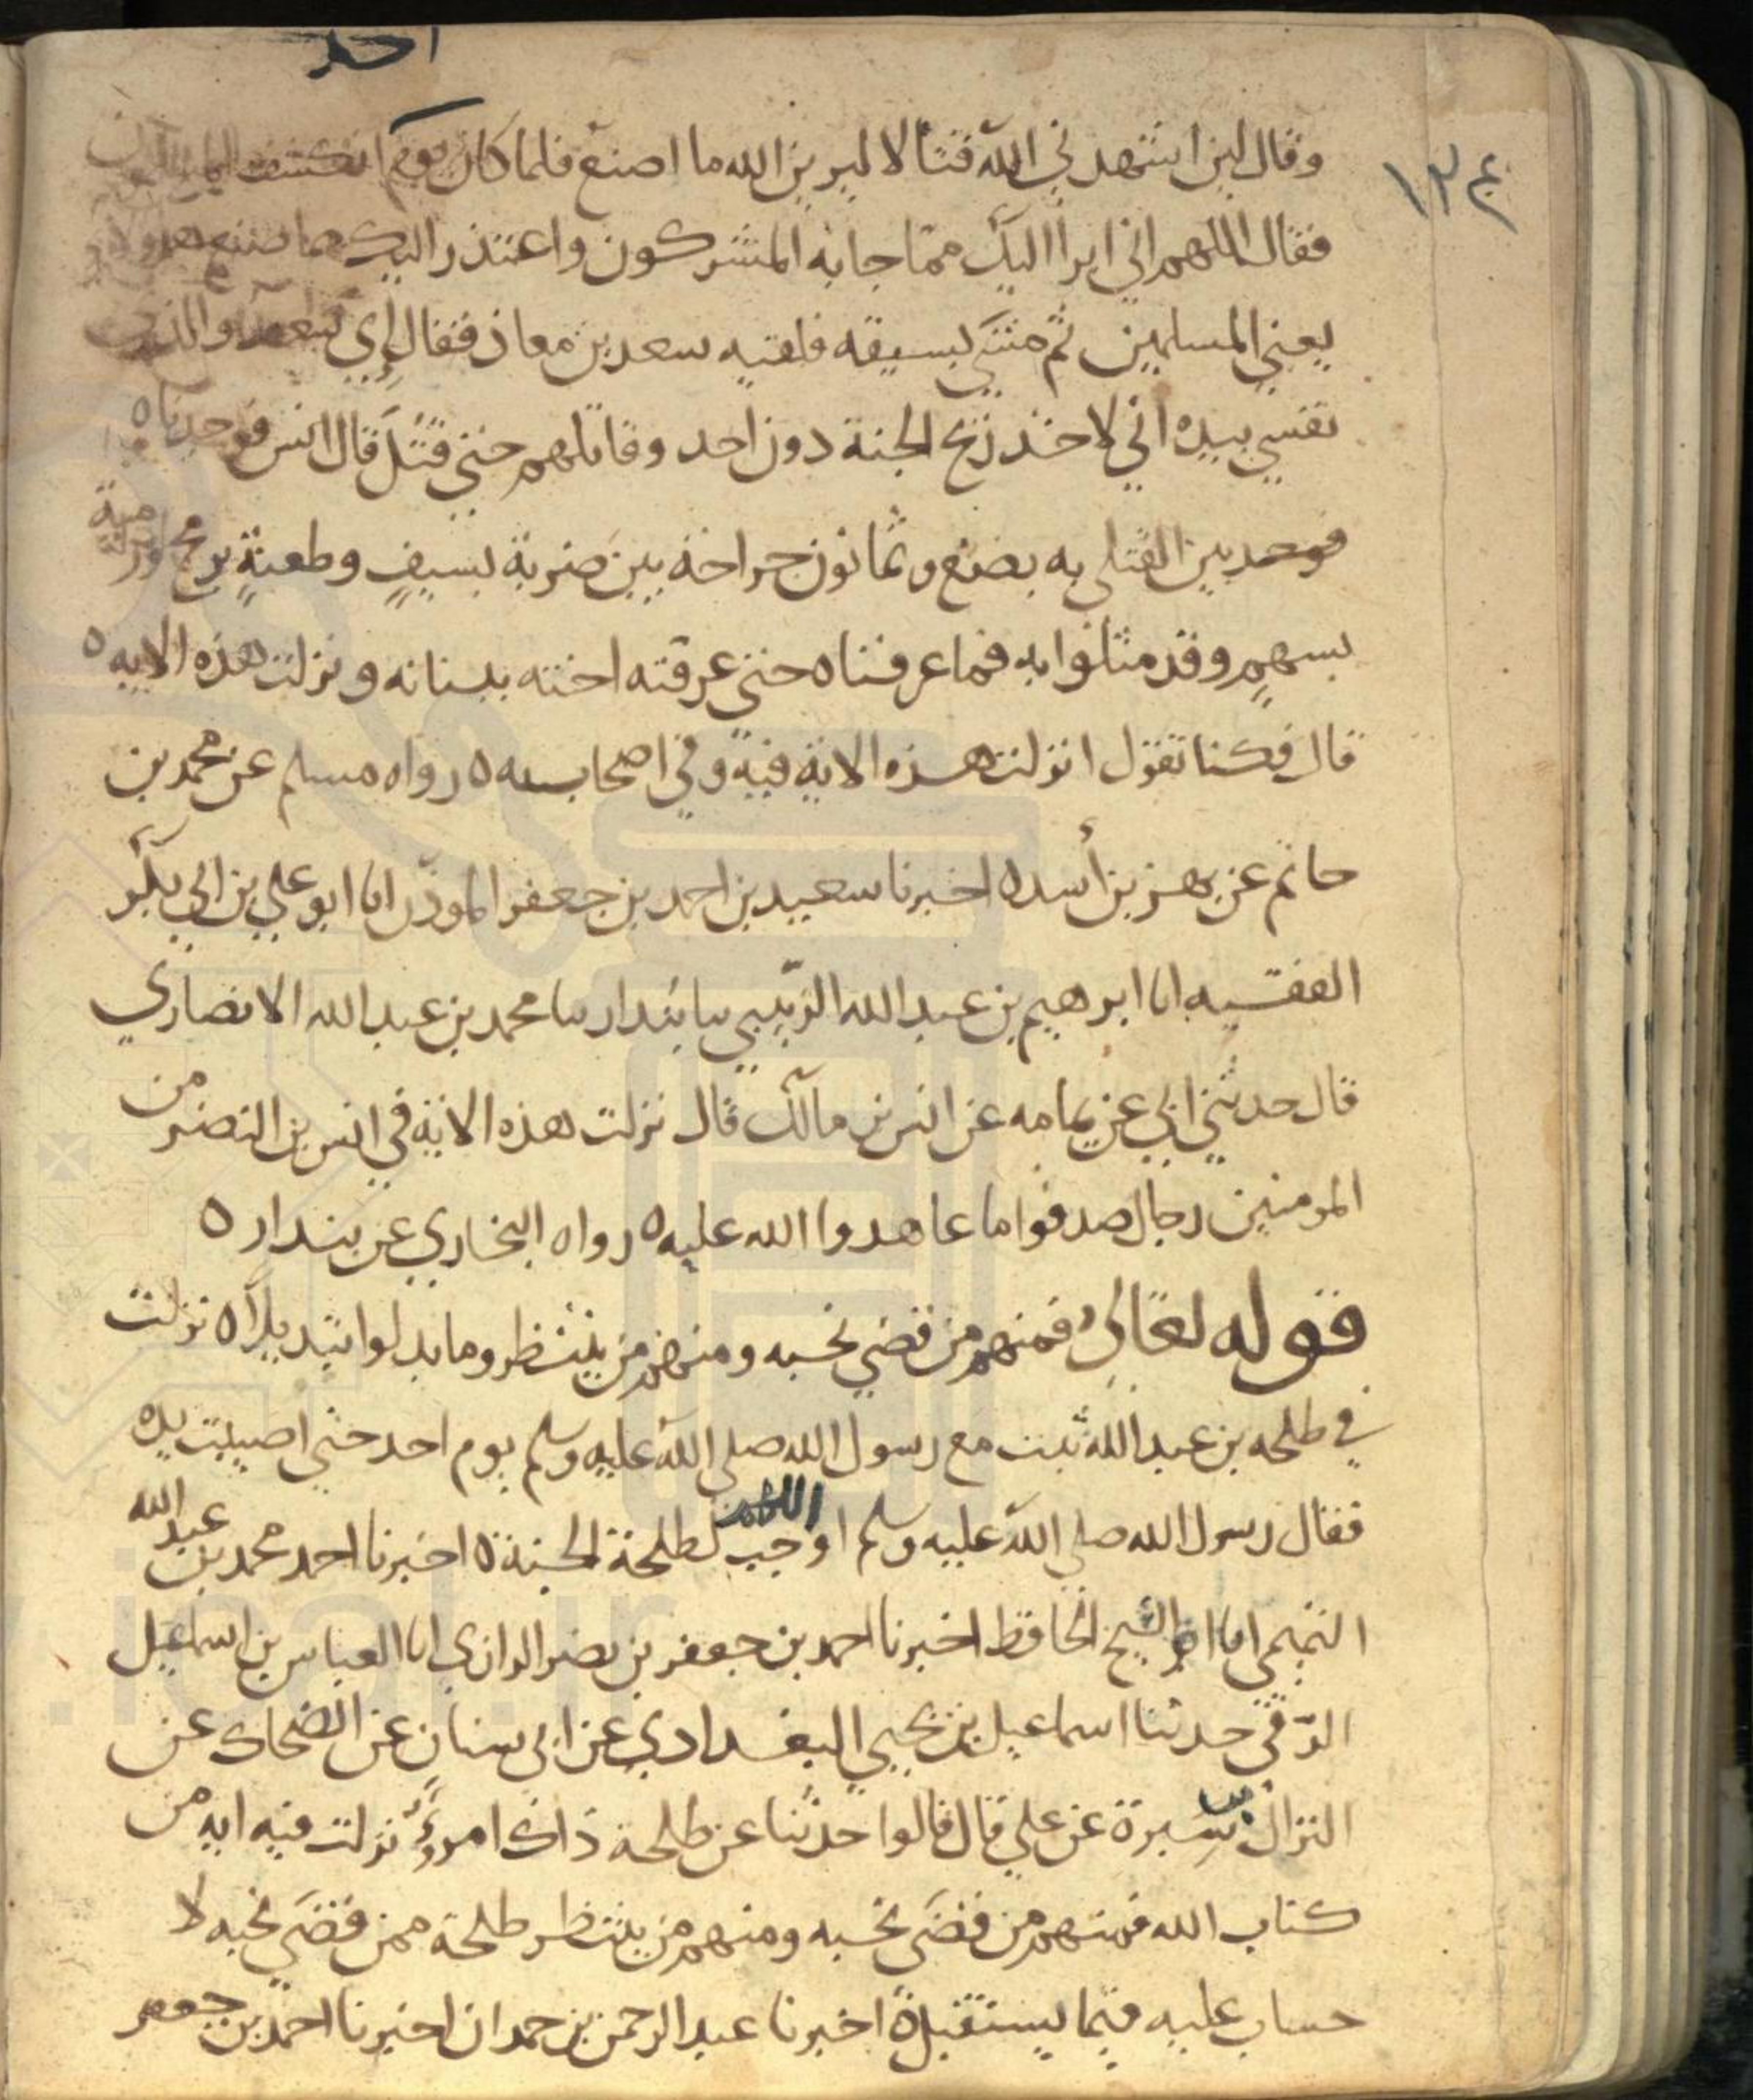 احد
١٣٤
وقال لين اشهدني الله قتالا ليرين الله ما اصنع فلما كان يوم انكشف المسلمون
فقال اللهم اني ابرا اليك مما جا به المشركون واعتذر اليك مما صنع هولاء
يعني المسلمين ثم مشى بسيفه فلقيه سعد بن معاذ فقال اي سعد والذي
نفسي بيده اني لاجد ريح الجنة دون احد وقاتلهم حتي قتل قال انس فوجدناه
بين القتلي به بضع وثمانون جراحة بين ضربة بسيف وطعنة برمح ورمية
بسهم وقد مثلوا به فما عرفناه حتي عرفته اخته ببنانه ونزلت هذه الايه ٥
قال فكنا نقول انزلت هذه الاية فيه وفي اصحابه ٥ رواه مسلم عن محمد بن
حاتم عن بهز بن أسد ٥ اخبرنا سعيد بن احمد بن جعفر الموذن انا ابو علي بن ابي بكر
الفقيه انا ابرهيم بن عبد الله الزبيبي سا بندار سا محمد بن عبد الله الانصاري
قال حدثني ابي عن يمامه عن انس بن مالك قال نزلت هذه الاية في انس بن النضر من
المومنين رجال صدقوا ما عاهدوا الله عليه ٥ رواه البخاري عن بندار ٥
قوله تعالى فمنهم من قضي نحبه ومنهم من ينتظر وما بدلوا تبديلا ٥ نزلت
في طلحه بن عبد الله ثبت مع رسول الله صلي الله عليه وسلم يوم احد حتي اصيبت يده
فقال رسول الله صلي الله عليه وسلم اللهم اوجب لطلحة الجنة ٥ اخبرنا احمد محمد بن عبد الله
التميمي انا ابو الشيخ الحافظ اخبرنا احمد بن جعفر بن نصر الرازي انا العباس بن اسماعيل
الرقي حدثنا اسماعيل بن يحيي البغدادي عن ابي سنان عن الضحاك عن
النزال بن سبرة عن علي قال قالوا حدثنا عن طلحة ذاك امرؤ نزلت فيه ايه من
كتاب الله فمنهم من قضى نحبه ومنهم من ينتظر طلحة ممن قضى نحبه لا
حساب عليه فيما يستقبل ٥ اخبرنا عبد الرحمن بن حمدان اخبرنا احمد بن جعفر